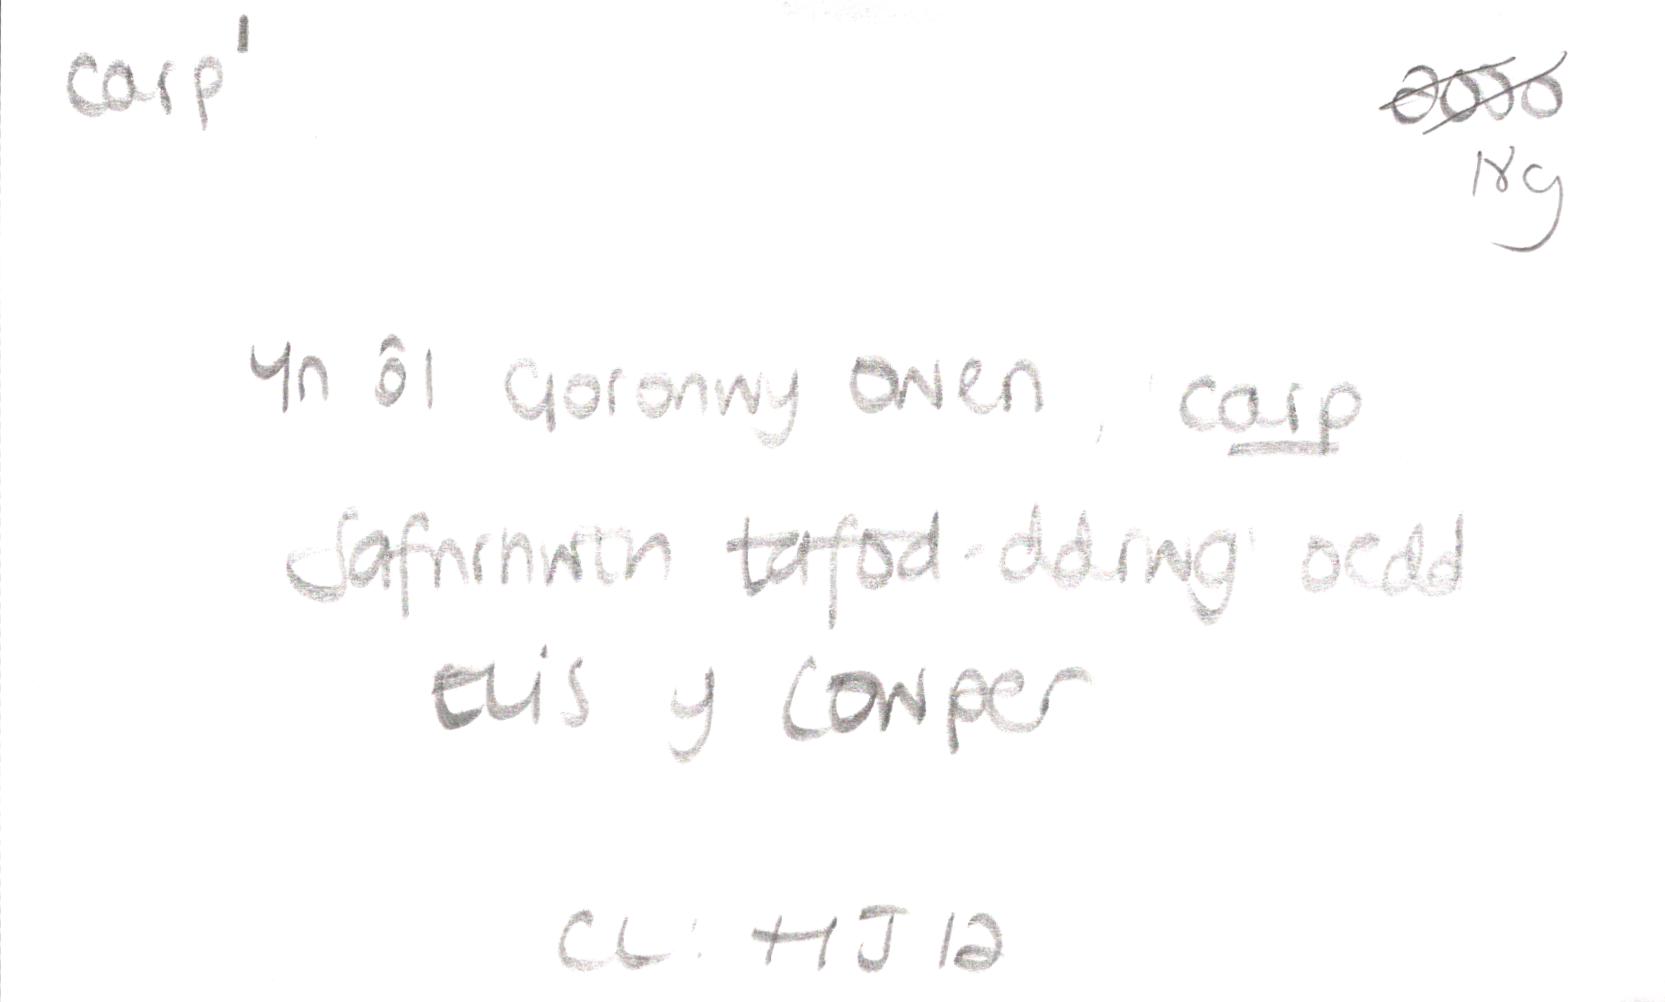 carp¹
2000
18g
Yn ôl Goronwy Owen, carp
safnrhwth tafod-ddrwg' oedd
Elis y Cowper
CL: HJ 12